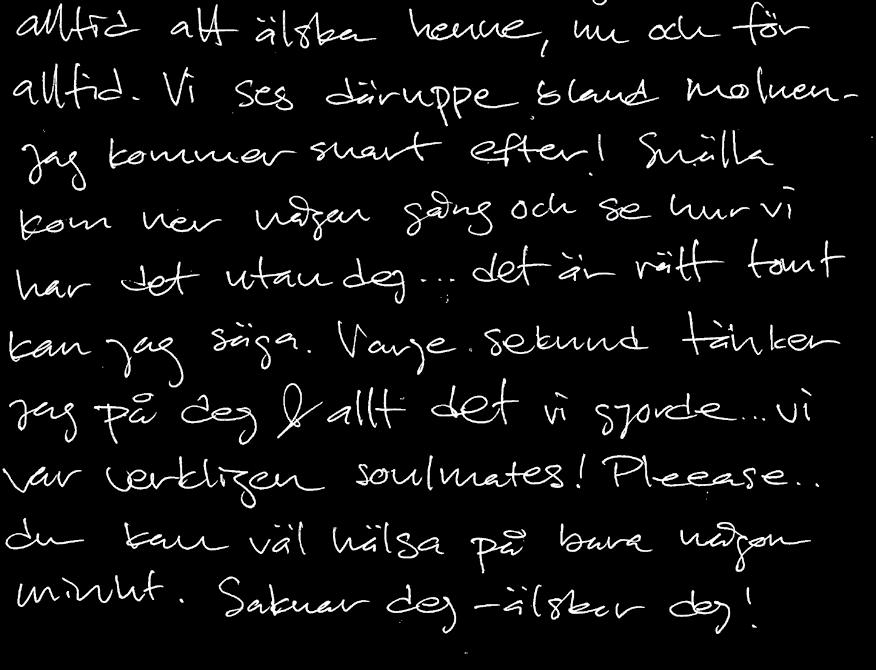 alltid att älska henne, nu och för
alltid. Vi ses däruppe bland molnen-
jag kommer snart efter! Snälla
kom ner någon gång och se hur vi
har det utan deg... det är rätt tomt
kan jag säga. Varje sekund tänker
jag på deg & allt det vi gjorde... vi
var verkligen soulmates! Pleeease..
du kan väl hälsa på bara någon
minut. Saknar deg - älskar deg!